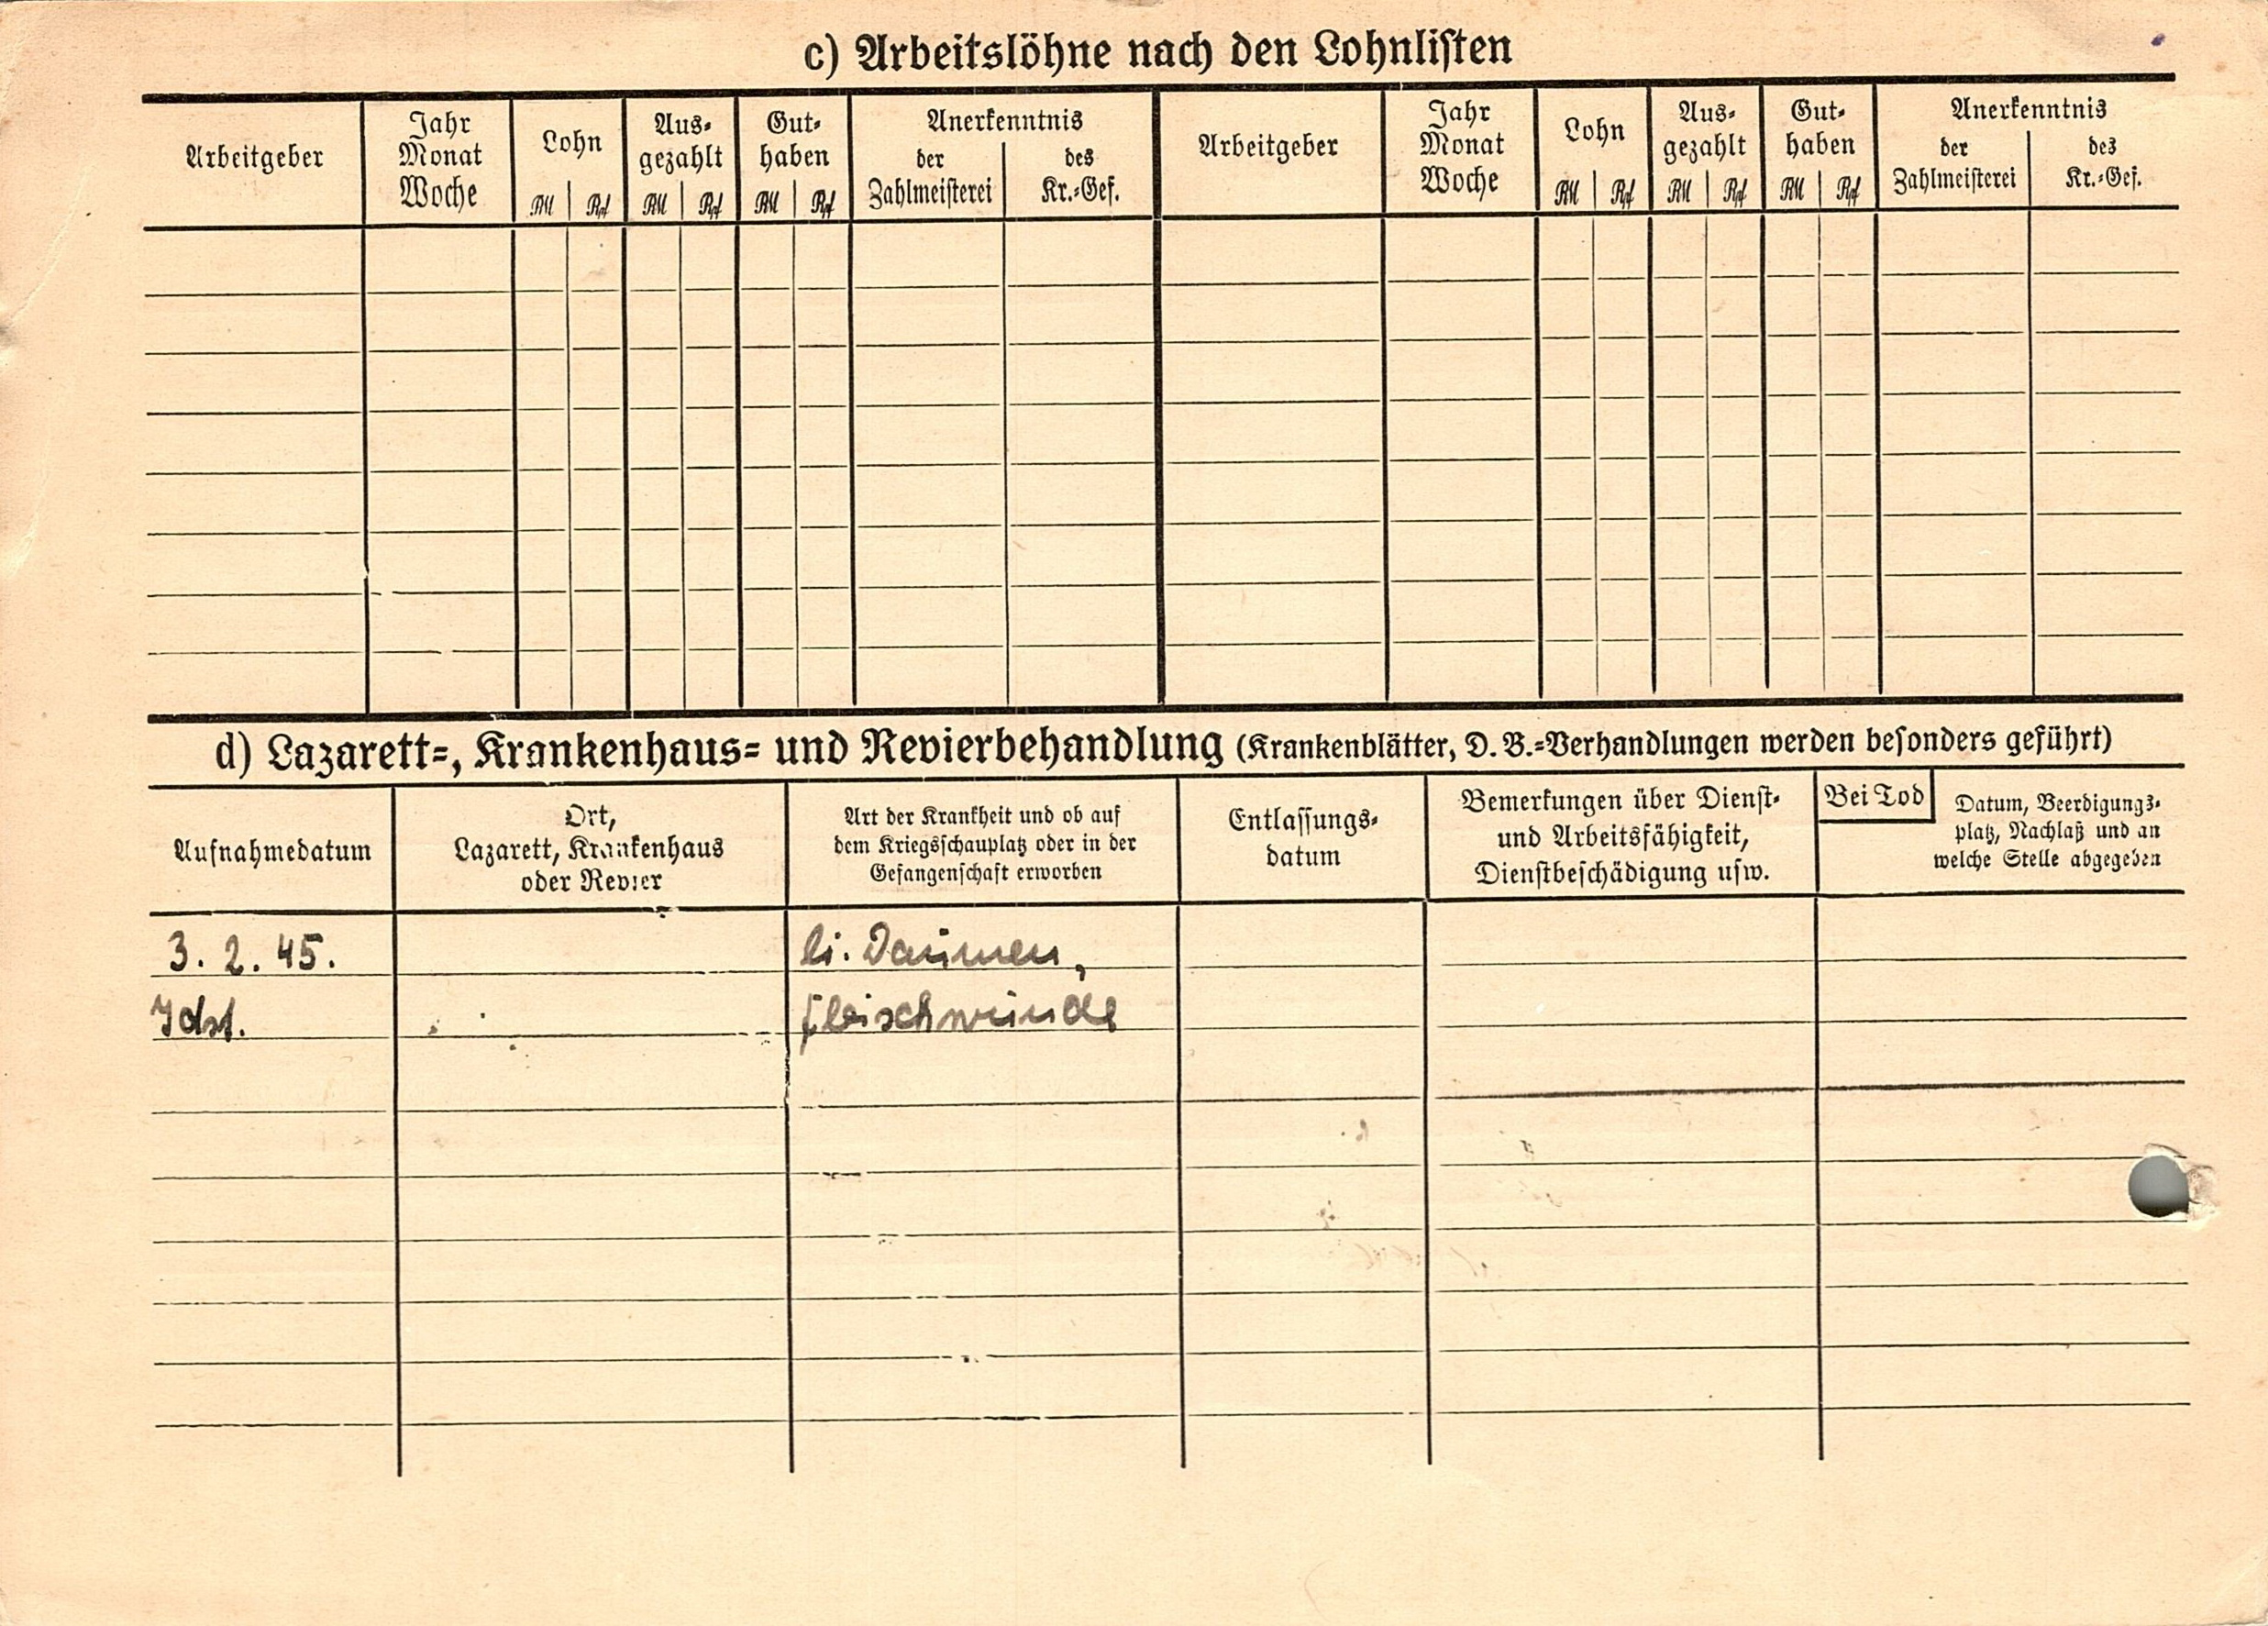 c) Arbeitslöhne nach den Lohnlisten
Arbeitgeber
Jahr
Monat
Woche
Lohn
RM Rpf
Aus-
gezahlt
RM Rpf
Gut-
haben
RM Rpf
Anerkenntnis
der
Zahlmeisterei
des
Kr.-Gef.
Arbeitgeber
Jahr
Monat
Woche
Lohn
RM Rpf
Aus-
gezahlt
RM Rpf
Gut-
haben
RM Rpf
Anerkenntnis
der
Zahlmeisterei
des
Kr.-Gef.
d) Lazarett-, Krankenhaus- und Revierbehandlung (Krankenblätter, D. B.-Verhandlungen werden besonders geführt)
Aufnahmedatum
Ort,
Lazarett, Krankenhaus
oder Revier
Art der Krankheit und ob auf
dem Kriegsschauplatz oder in der
Gefangenschaft erworben
Entlassungs-
datum
Bemerkungen über Dienst-
und Arbeitsfähigkeit,
Dienstbeschädigung usw.
Bei Tod
Datum, Beerdigungs-
platz, Nachlaß und an
welche Stelle abgegeben
3. 2. 45.
li. Daumen,
Fleischwunde